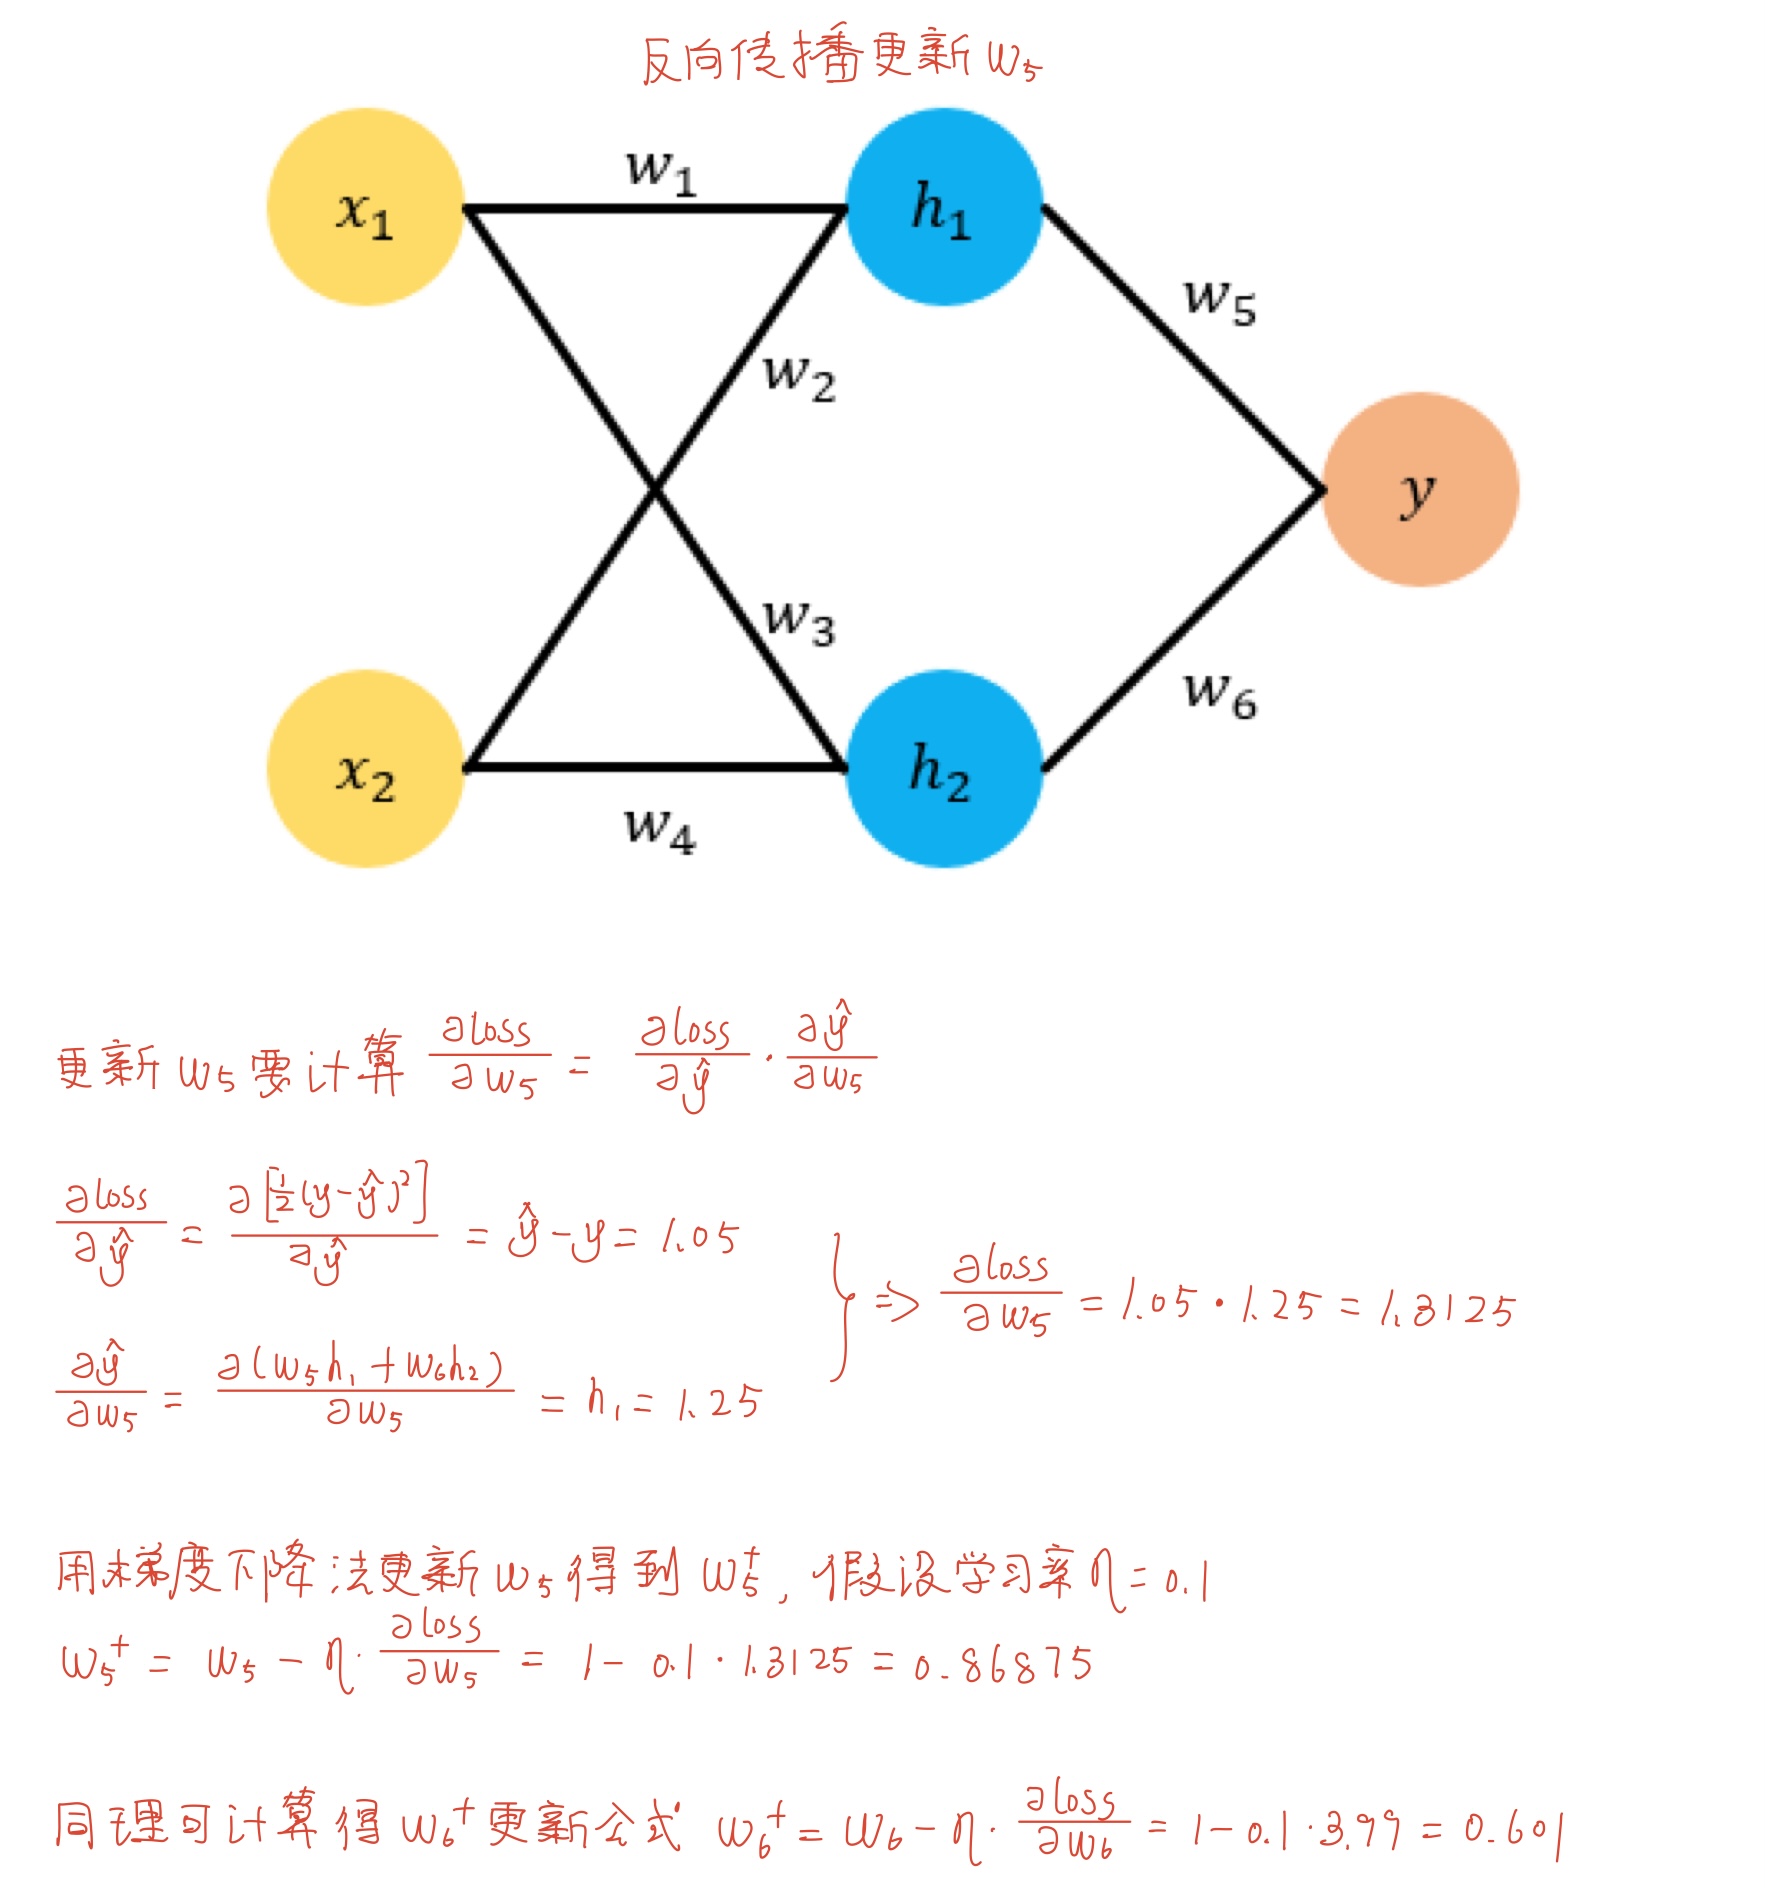 反向传播更新 w₅
x₁ w₁ h₁
w₅
w₂
y
w₃
w₆
x₂ h₂
w₄
更新 w₅ 要计算 ∂loss/∂w₅ = ∂loss/∂ŷ · ∂ŷ/∂w₅
∂loss/∂ŷ = ∂[½(y-ŷ)²]/∂ŷ = ŷ-y = 1.05
} => ∂loss/∂w₅ = 1.05 · 1.25 = 1.3125
∂ŷ/∂w₅ = ∂(w₅h₁+w₆h₂)/∂w₅ = h₁ = 1.25
用梯度下降法更新 w₅ 得到 w₅⁺, 假设学习率 η = 0.1
w₅⁺ = w₅ - η · ∂loss/∂w₅ = 1 - 0.1 · 1.3125 = 0.86875
同理可计算得 w₆⁺ 更新公式 w₆⁺ = w₆ - η · ∂loss/∂w₆ = 1 - 0.1 · 3.99 = 0.601